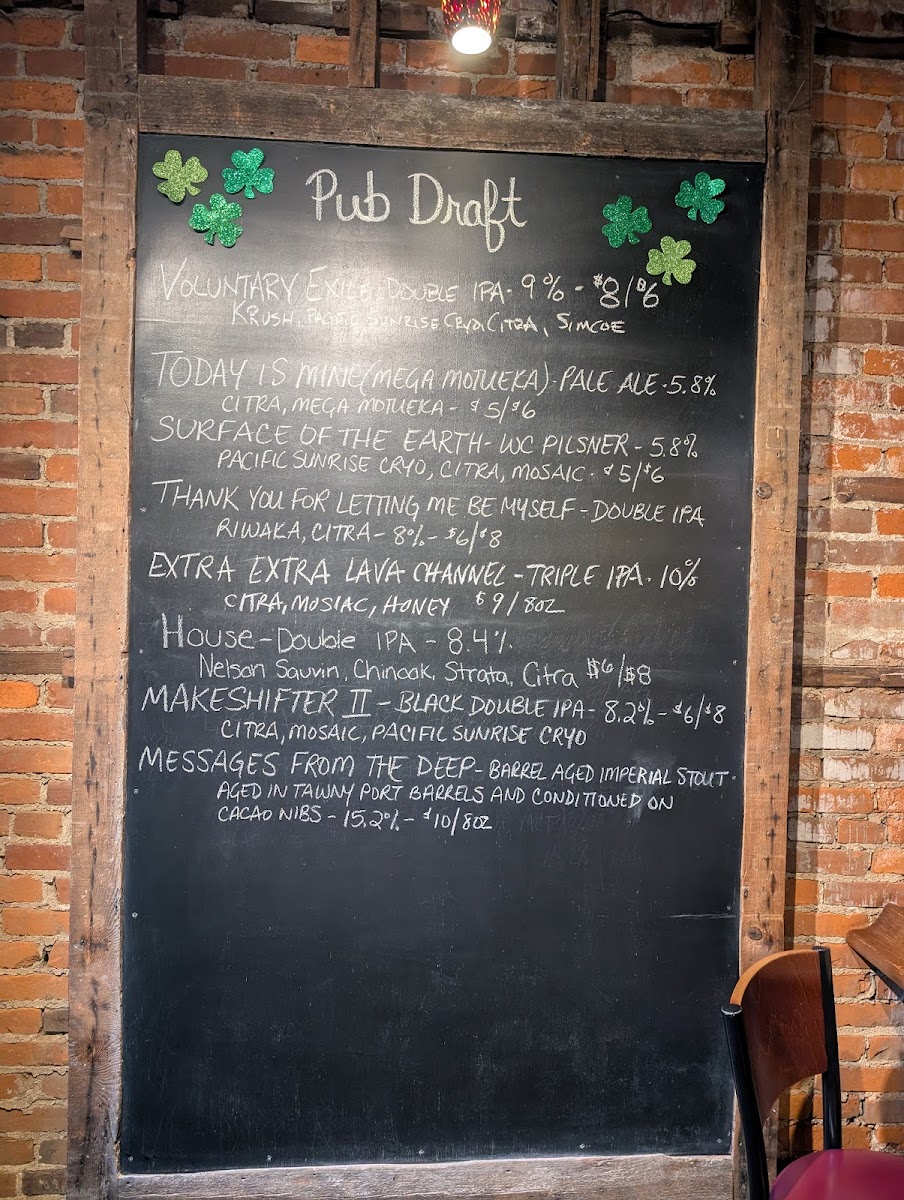 Pub Draft
VOLUNTARY EXILE DOUBLE IPA - 9% - $8/$6
KRUSH, SUNRISE CRYO, CITRA, SIMCOE
TODAY IS MINE (MEGA MOTUEKA) - PALE ALE - 5.8%
CITRA, MEGA MOTUEKA - $5/$6
SURFACE OF THE EARTH - WC PILSNER - 5.8%
PACIFIC SUNRISE CRYO, CITRA, MOSAIC - $5/$6
THANK YOU FOR LETTING ME BE MYSELF - DOUBLE IPA
RIWAKA, CITRA - 8% - $6/$8
EXTRA EXTRA LAVA CHANNEL - TRIPLE IPA - 10%
CITRA, MOSIAC, HONEY $9/8OZ
House - Double IPA - 8.4%
Nelson Sauvin, Chinook, Strata, Citra $6/$8
MAKESHIFTER II - BLACK DOUBLE IPA - 8.2% - $6/$8
CITRA, MOSAIC, PACIFIC SUNRISE CRYO
MESSAGES FROM THE DEEP - BARREL AGED IMPERIAL STOUT -
AGED IN TAWNY PORT BARRELS AND CONDITIONED ON
CACAO NIBS - 15.2% - $10/8OZ